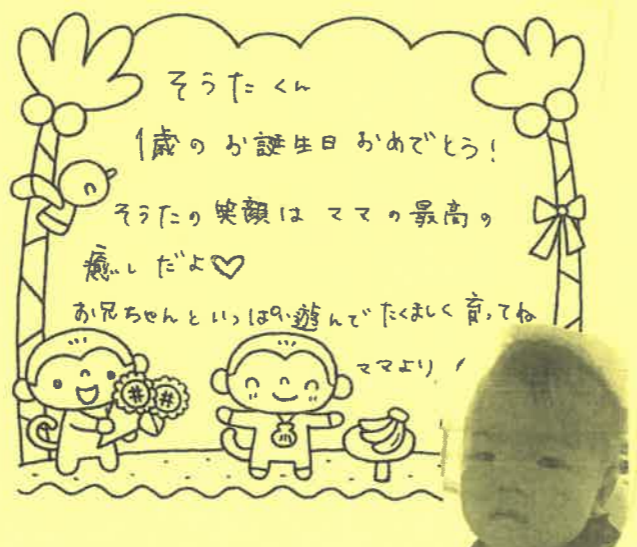 そうたくん
1歳のお誕生日おめでとう！
そうたの笑顔はママの最高の
癒しだよ♡
お兄ちゃんといっぱい遊んでたくましく育ってね
ママより